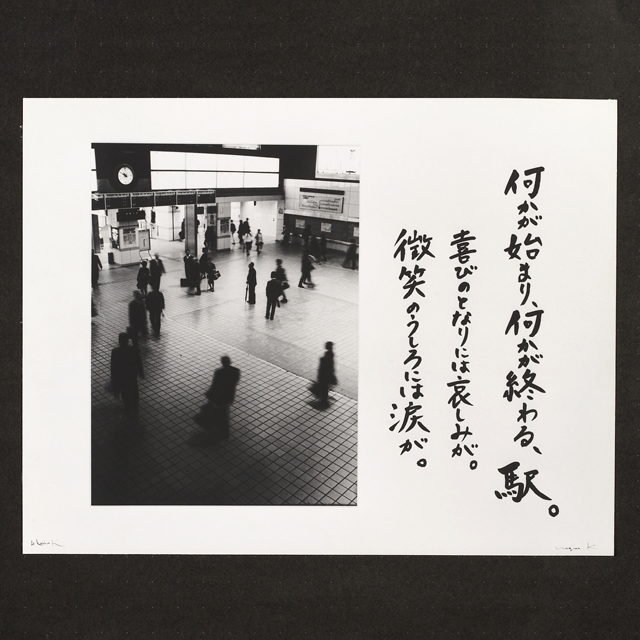 何かが始まり、何かが終わる、駅。
喜びのとなりには哀しみが。
微笑のうしろには涙が。